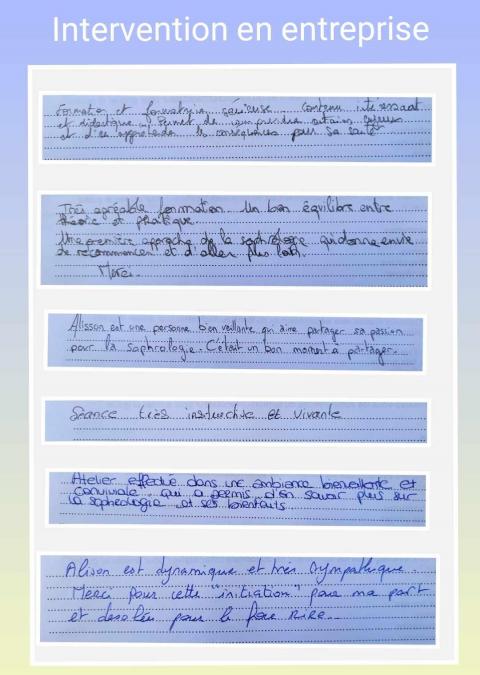 Intervention en entreprise
Formation et formatrice sérieuse. Contenu intéressant
et didactique. Permet de comprendre certains
et d'en appréhender les conséquences pour sa santé
Très agréable formation. Un bon équilibre entre
théorie et pratique.
Une première approche de la sophrologie qui donne envie
de recommencer et d'aller plus loin.
Merci.
Alisson est une personne bienveillante qui aime partager sa passion
pour la sophrologie. C'était un bon moment à partager.
Séance très instructive et vivante
Atelier effectué dans une ambiance bienveillante et
conviviale, qui a permis d'en savoir plus sur
la sophrologie et ses bienfaits
Alison est dynamique et très sympathique.
Merci pour cette "initiation" pour ma part
et désolée pour le fou rire...